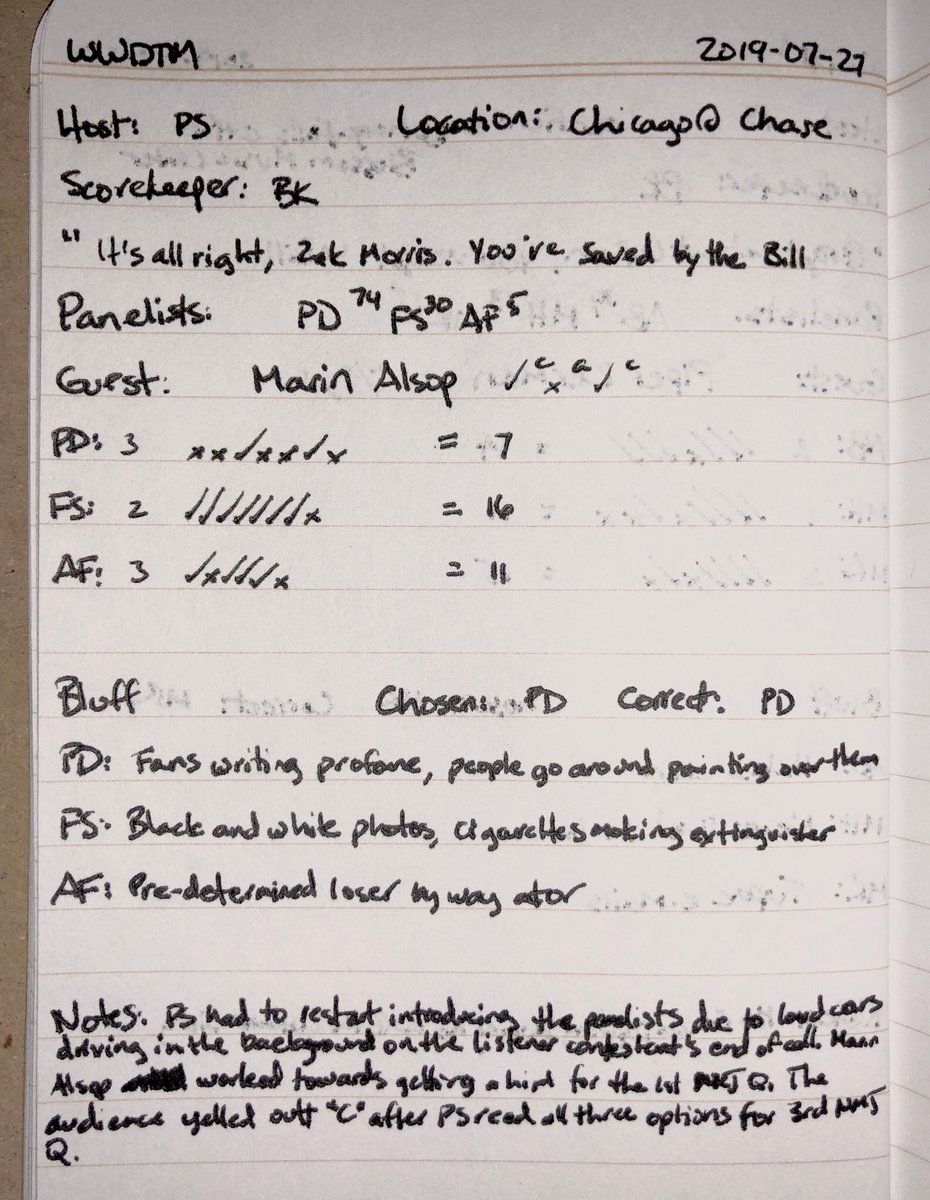 WWDTM 2019-07-27
Host: PS Location: Chicago @ Chase
Scorekeeper: BK
"" It's all right, Zak Morris. You've saved by the Bill
Panelists: PD 74 FS 30 AF 5
Guest: Marin Alsop ✓ c x a ✓ c
PD: 3 xx✓xx✓x = 7
FS: 2 ✓✓✓✓✓✓✓x = 16
AF: 3 ✓x✓✓✓x = 11
Bluff Chosen: PD Correct: PD
PD: Fans writing profane, people go around painting over them
FS: Black and white photos, cigarette smoking extinguisher
AF: Pre-determined loser by way
Notes: PS had to restart introducing the panelists due to loud cars
driving in the background on the listener contestant's end of call. Marin
Alsop worked towards getting a hint for the 1st NMJ Q. The
audience yelled out "C" after PS read all three options for 3rd NMJ
Q.